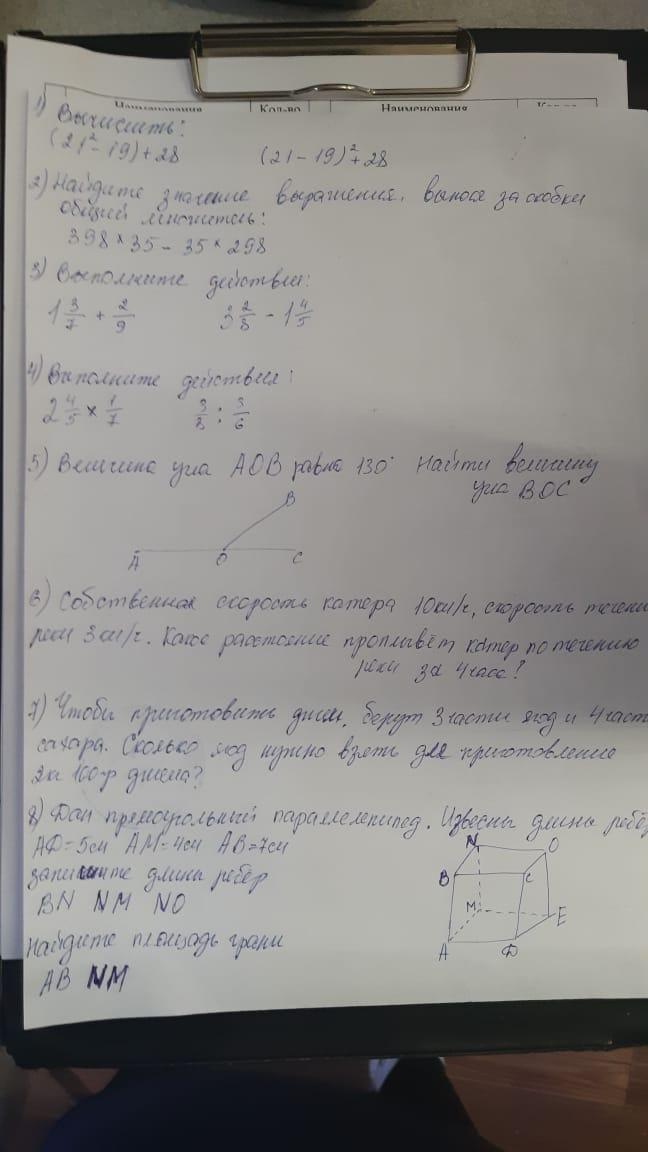 Наименования Кол-во Наименования
1) Вычислить:
(21²-19)+28 (21-19)²+28
2) Найдите значение выражения, вынося за скобки
общий множитель:
398 × 35 - 35 × 298
3) Выполните действия:
1 3/7 + 2/9 3 2/3 - 1 4/5
4) Выполните действия:
2 4/5 × 1/7 3/3 : 3/6
5) Величина угла АОВ равна 130° Найти величину
угла ВОС
В
А О С
6) Собственная скорость катера 10км/ч, скорость течени
реки 3 км/ч. Какое расстояние проплывёт катер по течению
реки за 4 часа?
7) Чтобы приготовить джем, берут 3 части ягод и 4 част
сахара. Сколько ягод нужно взять для приготовления
2кг 100гр джема?
8) Дан прямоугольный параллелепипед. Извесны длины ребёр
АD=5см АМ=4см АВ=7см
запишите длины ребёр
BN NM NO
Найдите площадь грани
АВ NM
N O
B C
M E
A D